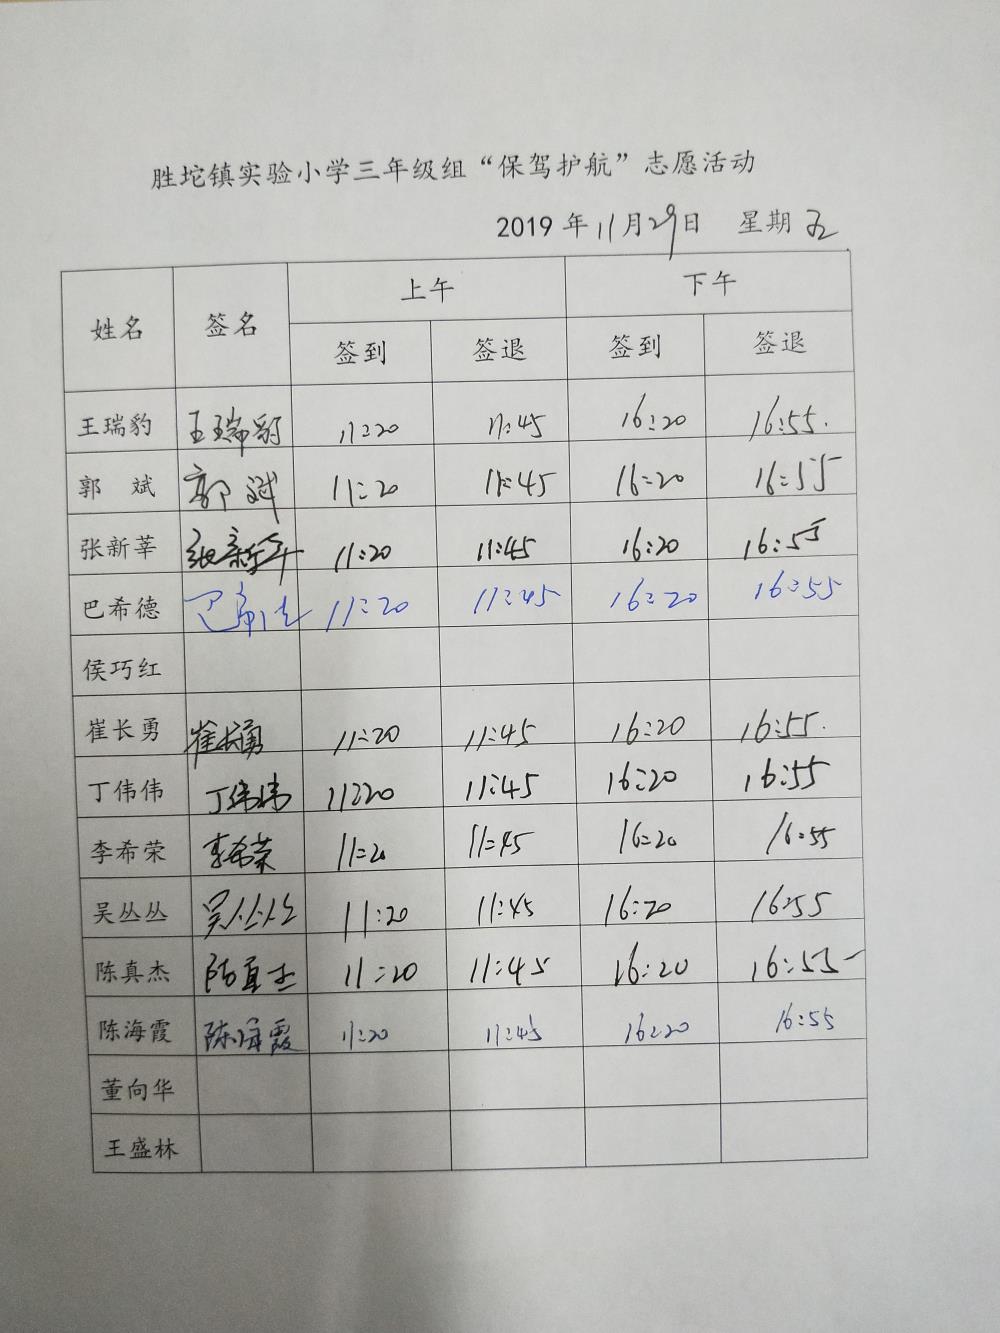 胜坨镇实验小学三年级组“保驾护航”志愿活动
2019 年 11 月 29 日 星期 五
姓名 签名 上午 下午
签到 签退 签到 签退
王瑞豹 王瑞豹 11:20 11:45 16:20 16:55
郭 斌 郭斌 11:20 11:45 16:20 16:55
张新莘 张新莘 11:20 11:45 16:20 16:55
巴希德 巴希德 11:20 11:45 16:20 16:55
侯巧红
崔长勇 崔长勇 11:20 11:45 16:20 16:55
丁伟伟 丁伟伟 11:20 11:45 16:20 16:55
李希荣 李希荣 11:20 11:45 16:20 16:55
吴丛丛 吴丛丛 11:20 11:45 16:20 16:55
陈真杰 陈真杰 11:20 11:45 16:20 16:55
陈海霞 陈海霞 11:20 11:45 16:20 16:55
董向华
王盛林